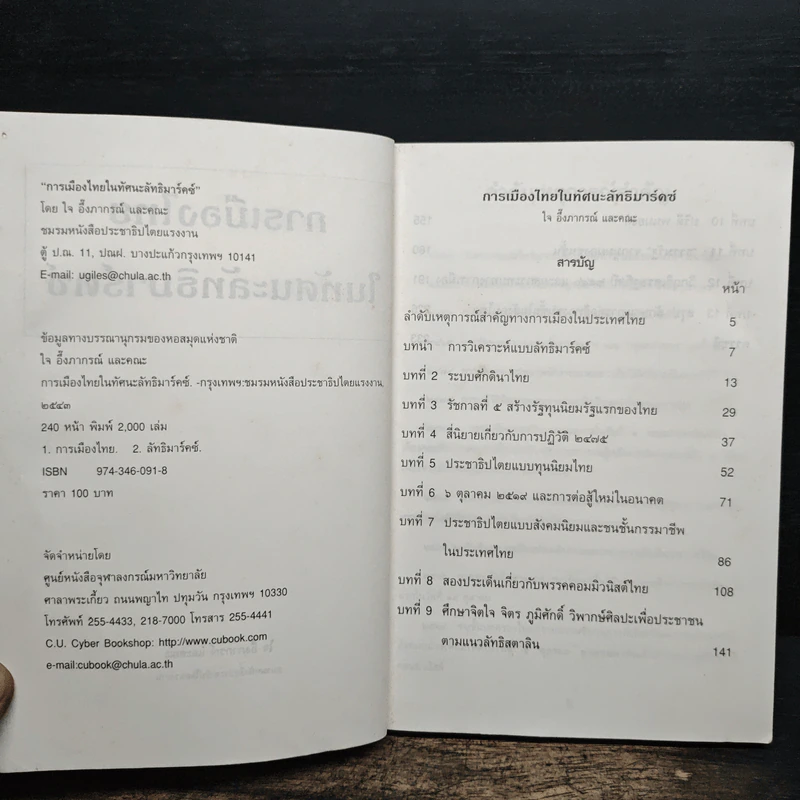 "การเมืองไทยในทัศนะลัทธิมาร์คซ์"
โดย ใจ อึ๊งภากรณ์ และคณะ
ชมรมหนังสือประชาธิปไตยแรงงาน
ตู้ ป.ณ. 11, ปณฝ. บางปะแก้วกรุงเทพฯ 10141
E-mail: ugiles@chula.ac.th
ข้อมูลทางบรรณานุกรมของหอสมุดแห่งชาติ
ใจ อึ๊งภากรณ์ และคณะ
การเมืองไทยในทัศนะลัทธิมาร์คซ์. -กรุงเทพฯ:ชมรมหนังสือประชาธิปไตยแรงงาน,
๒๕๔๓
240 หน้า พิมพ์ 2,000 เล่ม
1. การเมืองไทย. 2. ลัทธิมาร์คซ์.
ISBN 974-346-091-8
ราคา 100 บาท
จัดจำหน่ายโดย
ศูนย์หนังสือจุฬาลงกรณ์มหาวิทยาลัย
ศาลาพระเกี้ยว ถนนพญาไท ปทุมวัน กรุงเทพฯ 10330
โทรศัพท์ 255-4433, 218-7000 โทรสาร 255-4441
C.U. Cyber Bookshop: http://www.cubook.com
e-mail:cubook@chula.ac.th
การเมืองไทยในทัศนะลัทธิมาร์คซ์
ใจ อึ๊งภากรณ์ และคณะ
สารบัญ
หน้า
ลำดับเหตุการณ์สำคัญทางการเมืองในประเทศไทย 5
บทนำ การวิเคราะห์แบบลัทธิมาร์คซ์ 7
บทที่ 2 ระบบศักดินาไทย 13
บทที่ 3 รัชกาลที่ ๕ สร้างรัฐทุนนิยมรัฐแรกของไทย 29
บทที่ 4 สี่นิยายเกี่ยวกับการปฏิวัติ ๒๔๗๕ 37
บทที่ 5 ประชาธิปไตยแบบทุนนิยมไทย 52
บทที่ 6 ๖ ตุลาคม ๒๕๑๙ และการต่อสู้ใหม่ในอนาคต 71
บทที่ 7 ประชาธิปไตยแบบสังคมนิยมและชนชั้นกรรมาชีพ
ในประเทศไทย 86
บทที่ 8 สองประเด็นเกี่ยวกับพรรคคอมมิวนิสต์ไทย 108
บทที่ 9 ศึกษาจิตใจ จิตร ภูมิศักดิ์ วิพากษ์ศิลปะเพื่อประชาชน
ตามแนวลัทธิสตาลิน 141